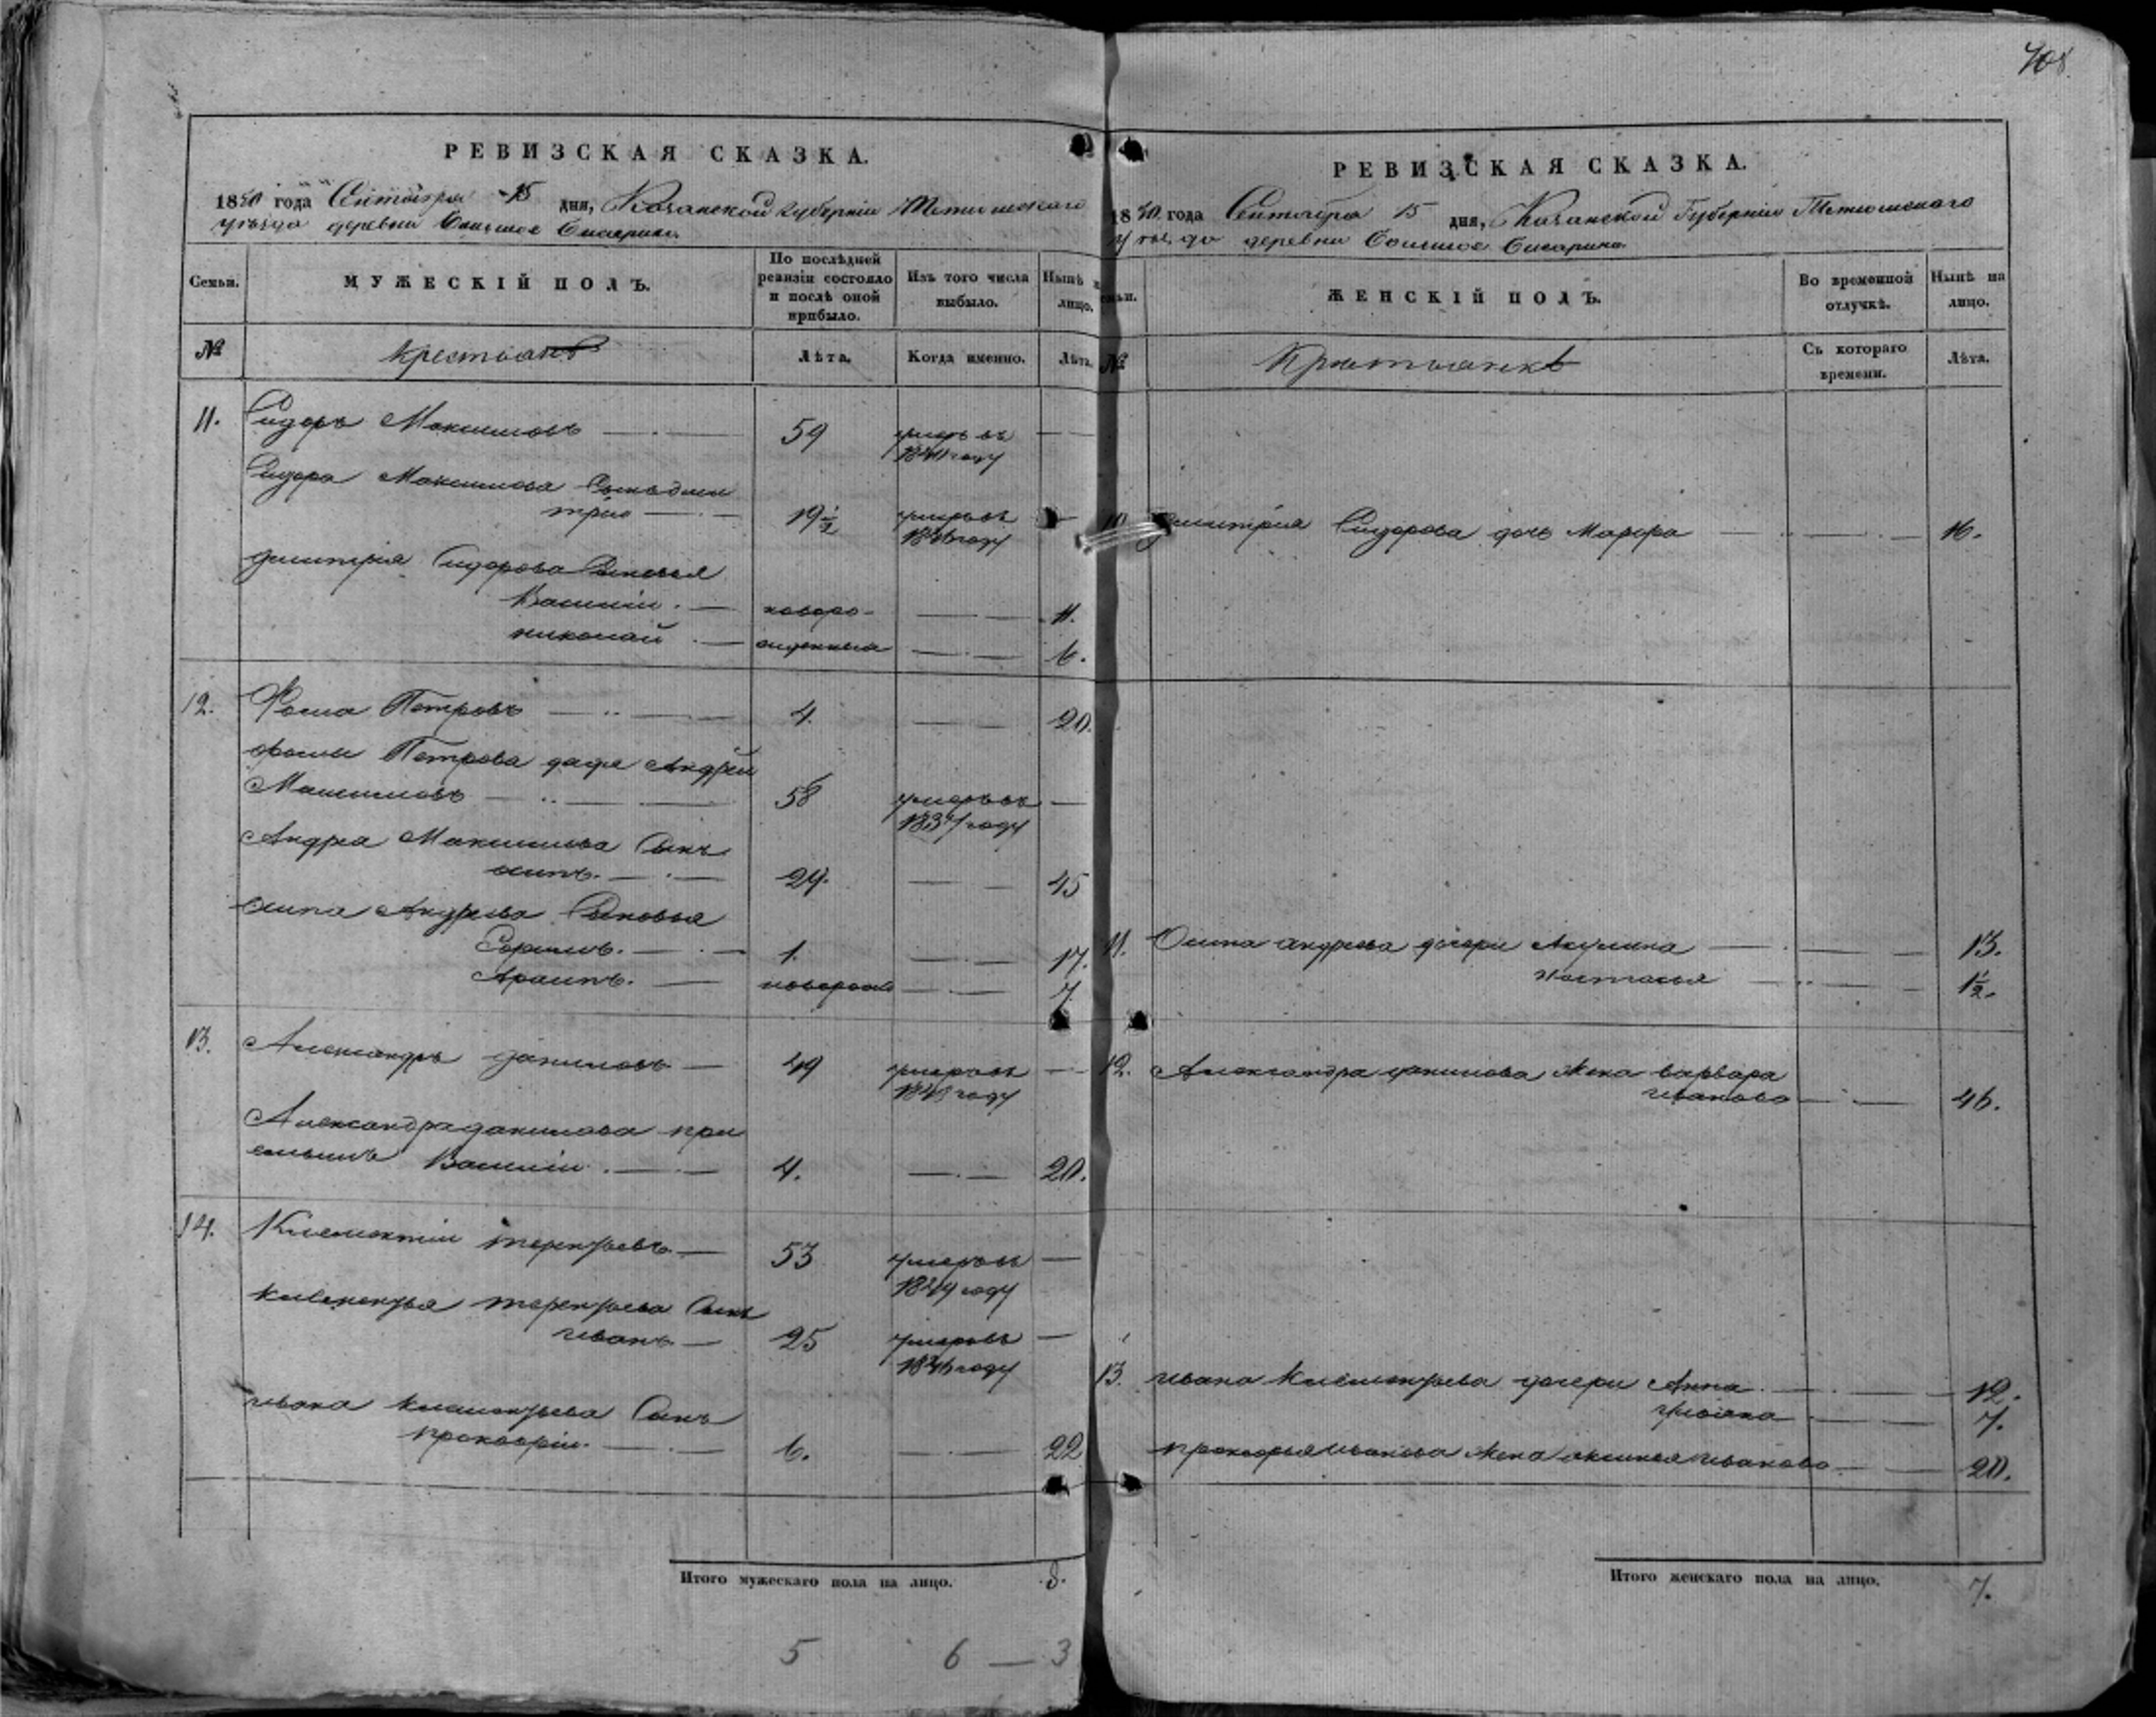 408.
РЕВИЗСКАЯ СКАЗКА.
1850 года Сентября 15 дня, Казанской Губернiи Тетюшскаго
уѣзда деревни
Семьи.
МУЖЕСКIЙ ПОЛЪ.
По послѣдней
ревизiи состояло
и послѣ оной
прибыло.
Изъ того числа
выбыло.
Нынѣ н
лицо.
№
Крестьянъ
Лѣта.
Когда именно.
Лѣта.
11. Сидоръ Максимовъ 59 умеръ въ
году
Сидора Максимова Сынъ Дми
трiй 19½ умеръ въ
1846 году
Дмитрiя Сидорова Сыновья
Василiй новоро- 11.
Николай жденныя 6.
12. Фома Петровъ 4. 20.
Фомы Петрова дядя Андрей
Максимовъ 58 умеръ въ
году
Андрея Максимова Сынъ
Осипъ 29. 45
Осипа Андреева Сыновья
1. 17.
новорож 7
13. Александръ Даниловъ 49 умеръ въ
году
Александра Данилова прi
емышъ Василiй 4. 20.
14. Климентiй Терентьевъ 53 умеръ въ
1849 году
Климентья Терентьева Сынъ
Иванъ 25 умеръ въ
1846 году
Ивана Климентьева Сынъ
Прокофiй 6. 22
Итого мужескаго пола на лицо. 8.
5 6 — 3
РЕВИЗСКАЯ СКАЗКА.
1850 года Сентября 15 дня, Казанской Губернiи Тетюшскаго
уѣзда деревни
емьи.
ЖЕНСКIЙ ПОЛЪ.
Во временной
отлучкѣ.
Нынѣ на
лицо.
№
Крестьянкѣ
Съ котораго
времени.
Лѣта.
10 Дмитрiя Сидорова дочь Марфа 16.
11. Осипа Андреева дочери Акулина 13.
Настасья 1½.
12. Александра Данилова жена Варвара
Иванова 46.
13. Ивана Климентьева дочери Анна 12.
Ульяна 7.
Прокофья Иванова жена Аксинья Иванова 20.
Итого женскаго пола на лицо. 7.